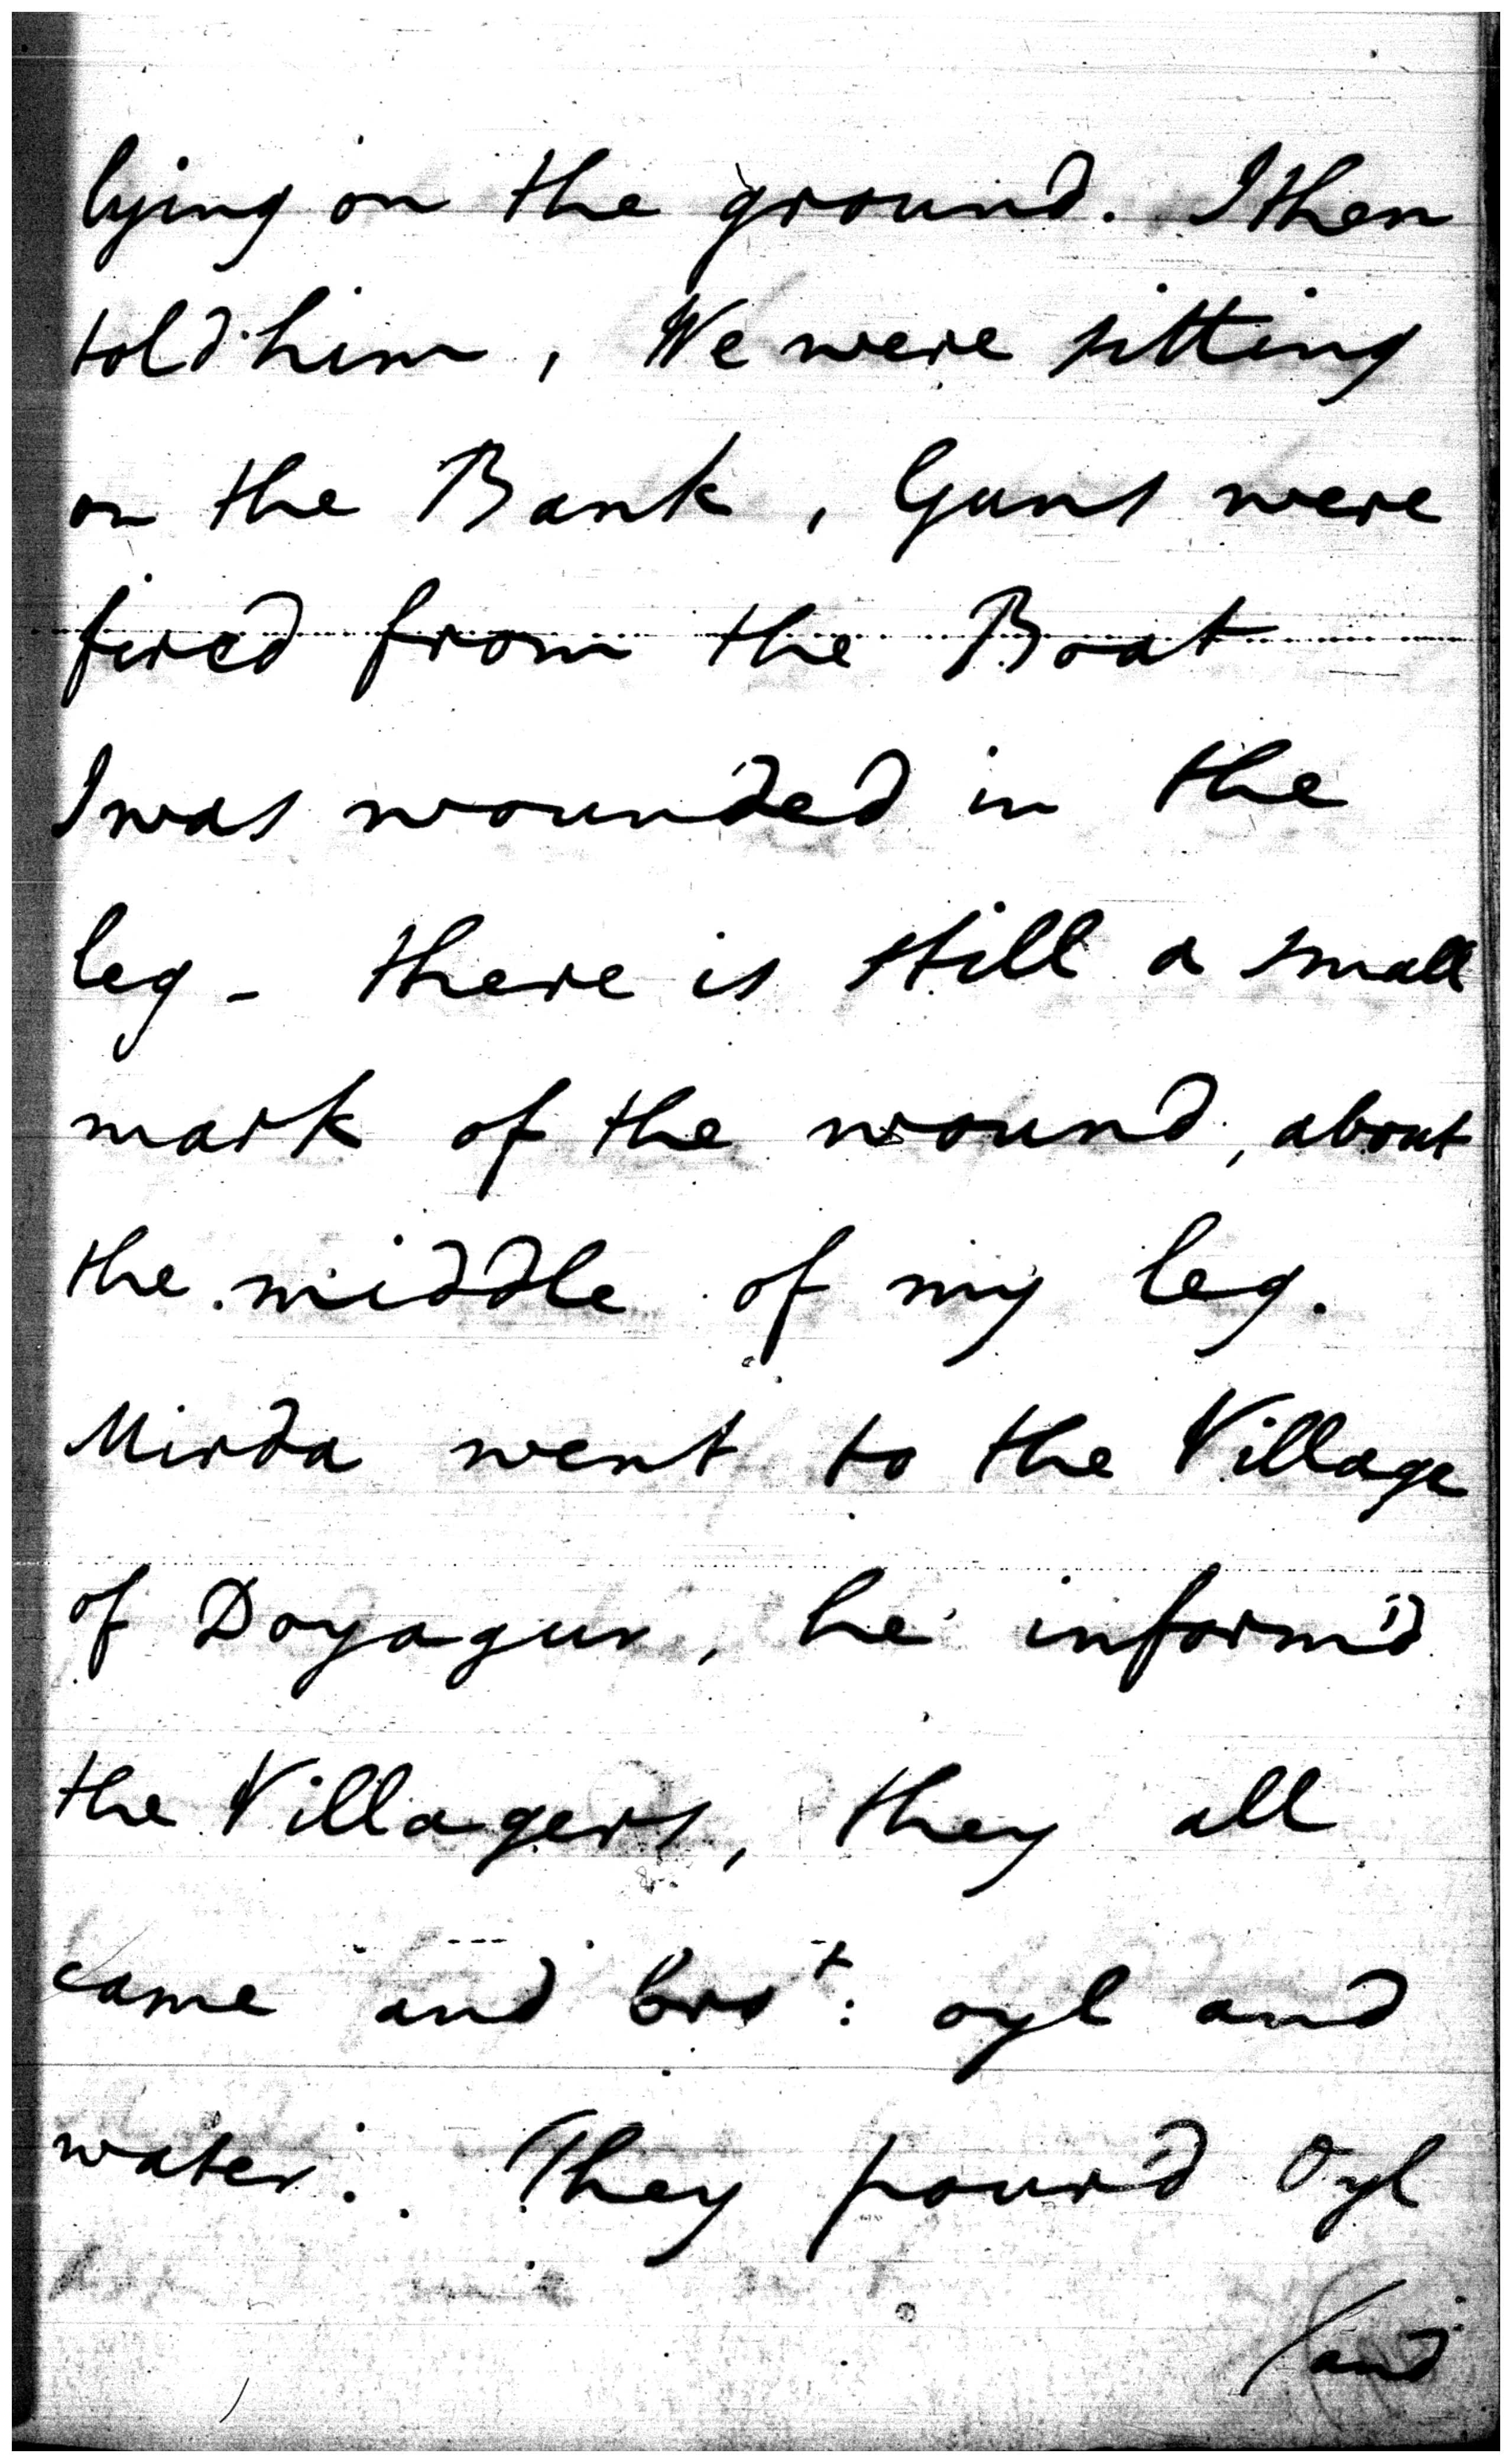 lying on the ground. I then
told him, We were sitting
on the Bank, Guns were
fired from the Boat
I was wounded in the
leg - there is still a small
mark of the wound, about
the middle of my leg.
Mirda went to the Village
of Doyagur, he inform'd
the Villagers, they all
came and brot: oyl and
water. They pour'd Oyl
/and